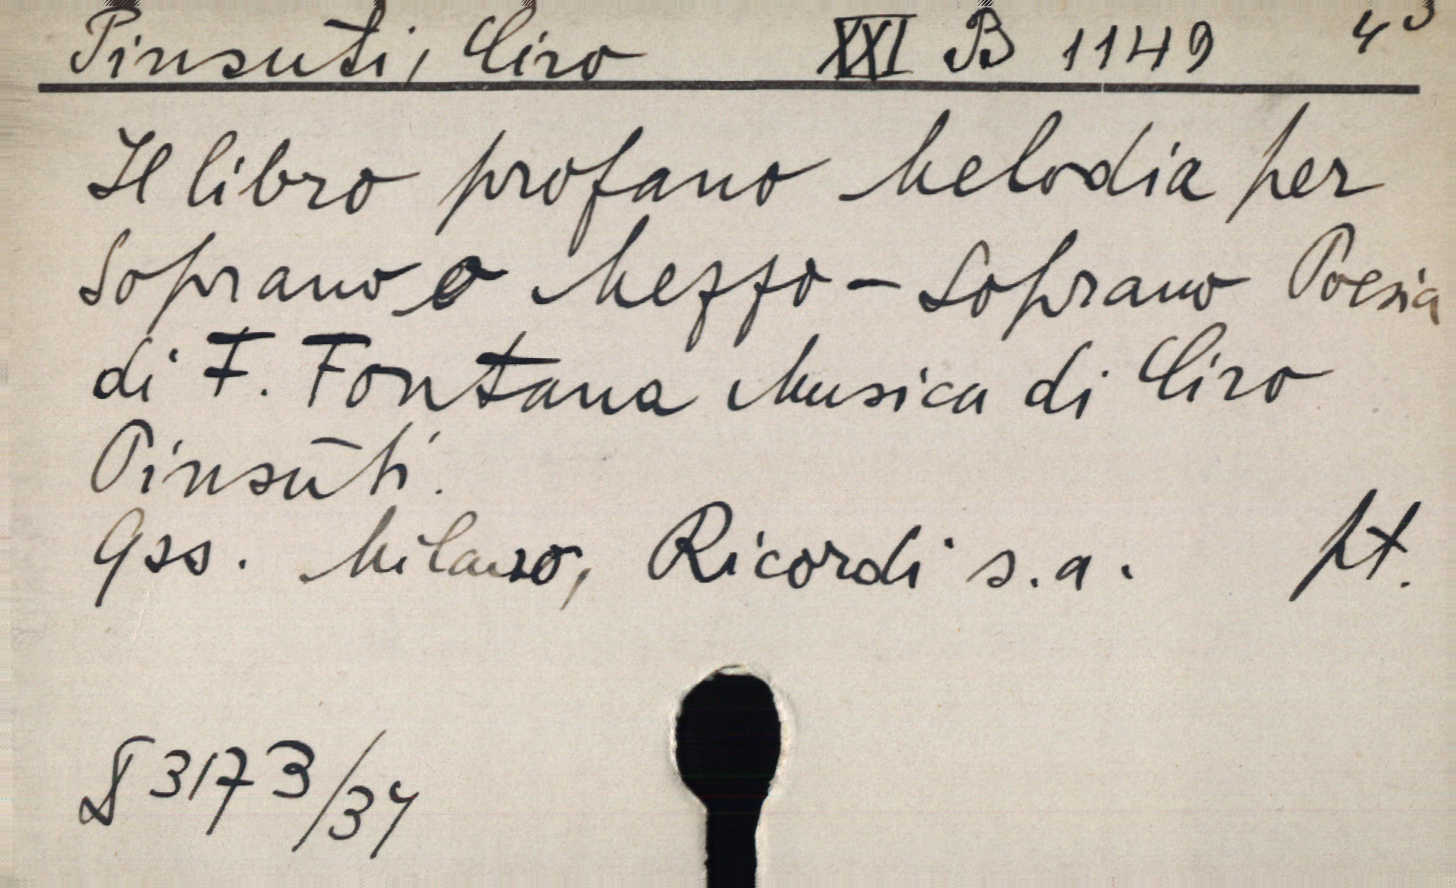 Pinsuti, Ciro XXI B 1149 4°
Il libro profano Melodia per
Soprano o Mezzo-Soprano Poesia
di F. Fontana Musica di Ciro
Pinsuti.
Milano, Ricordi s.a. pt.
3173/34